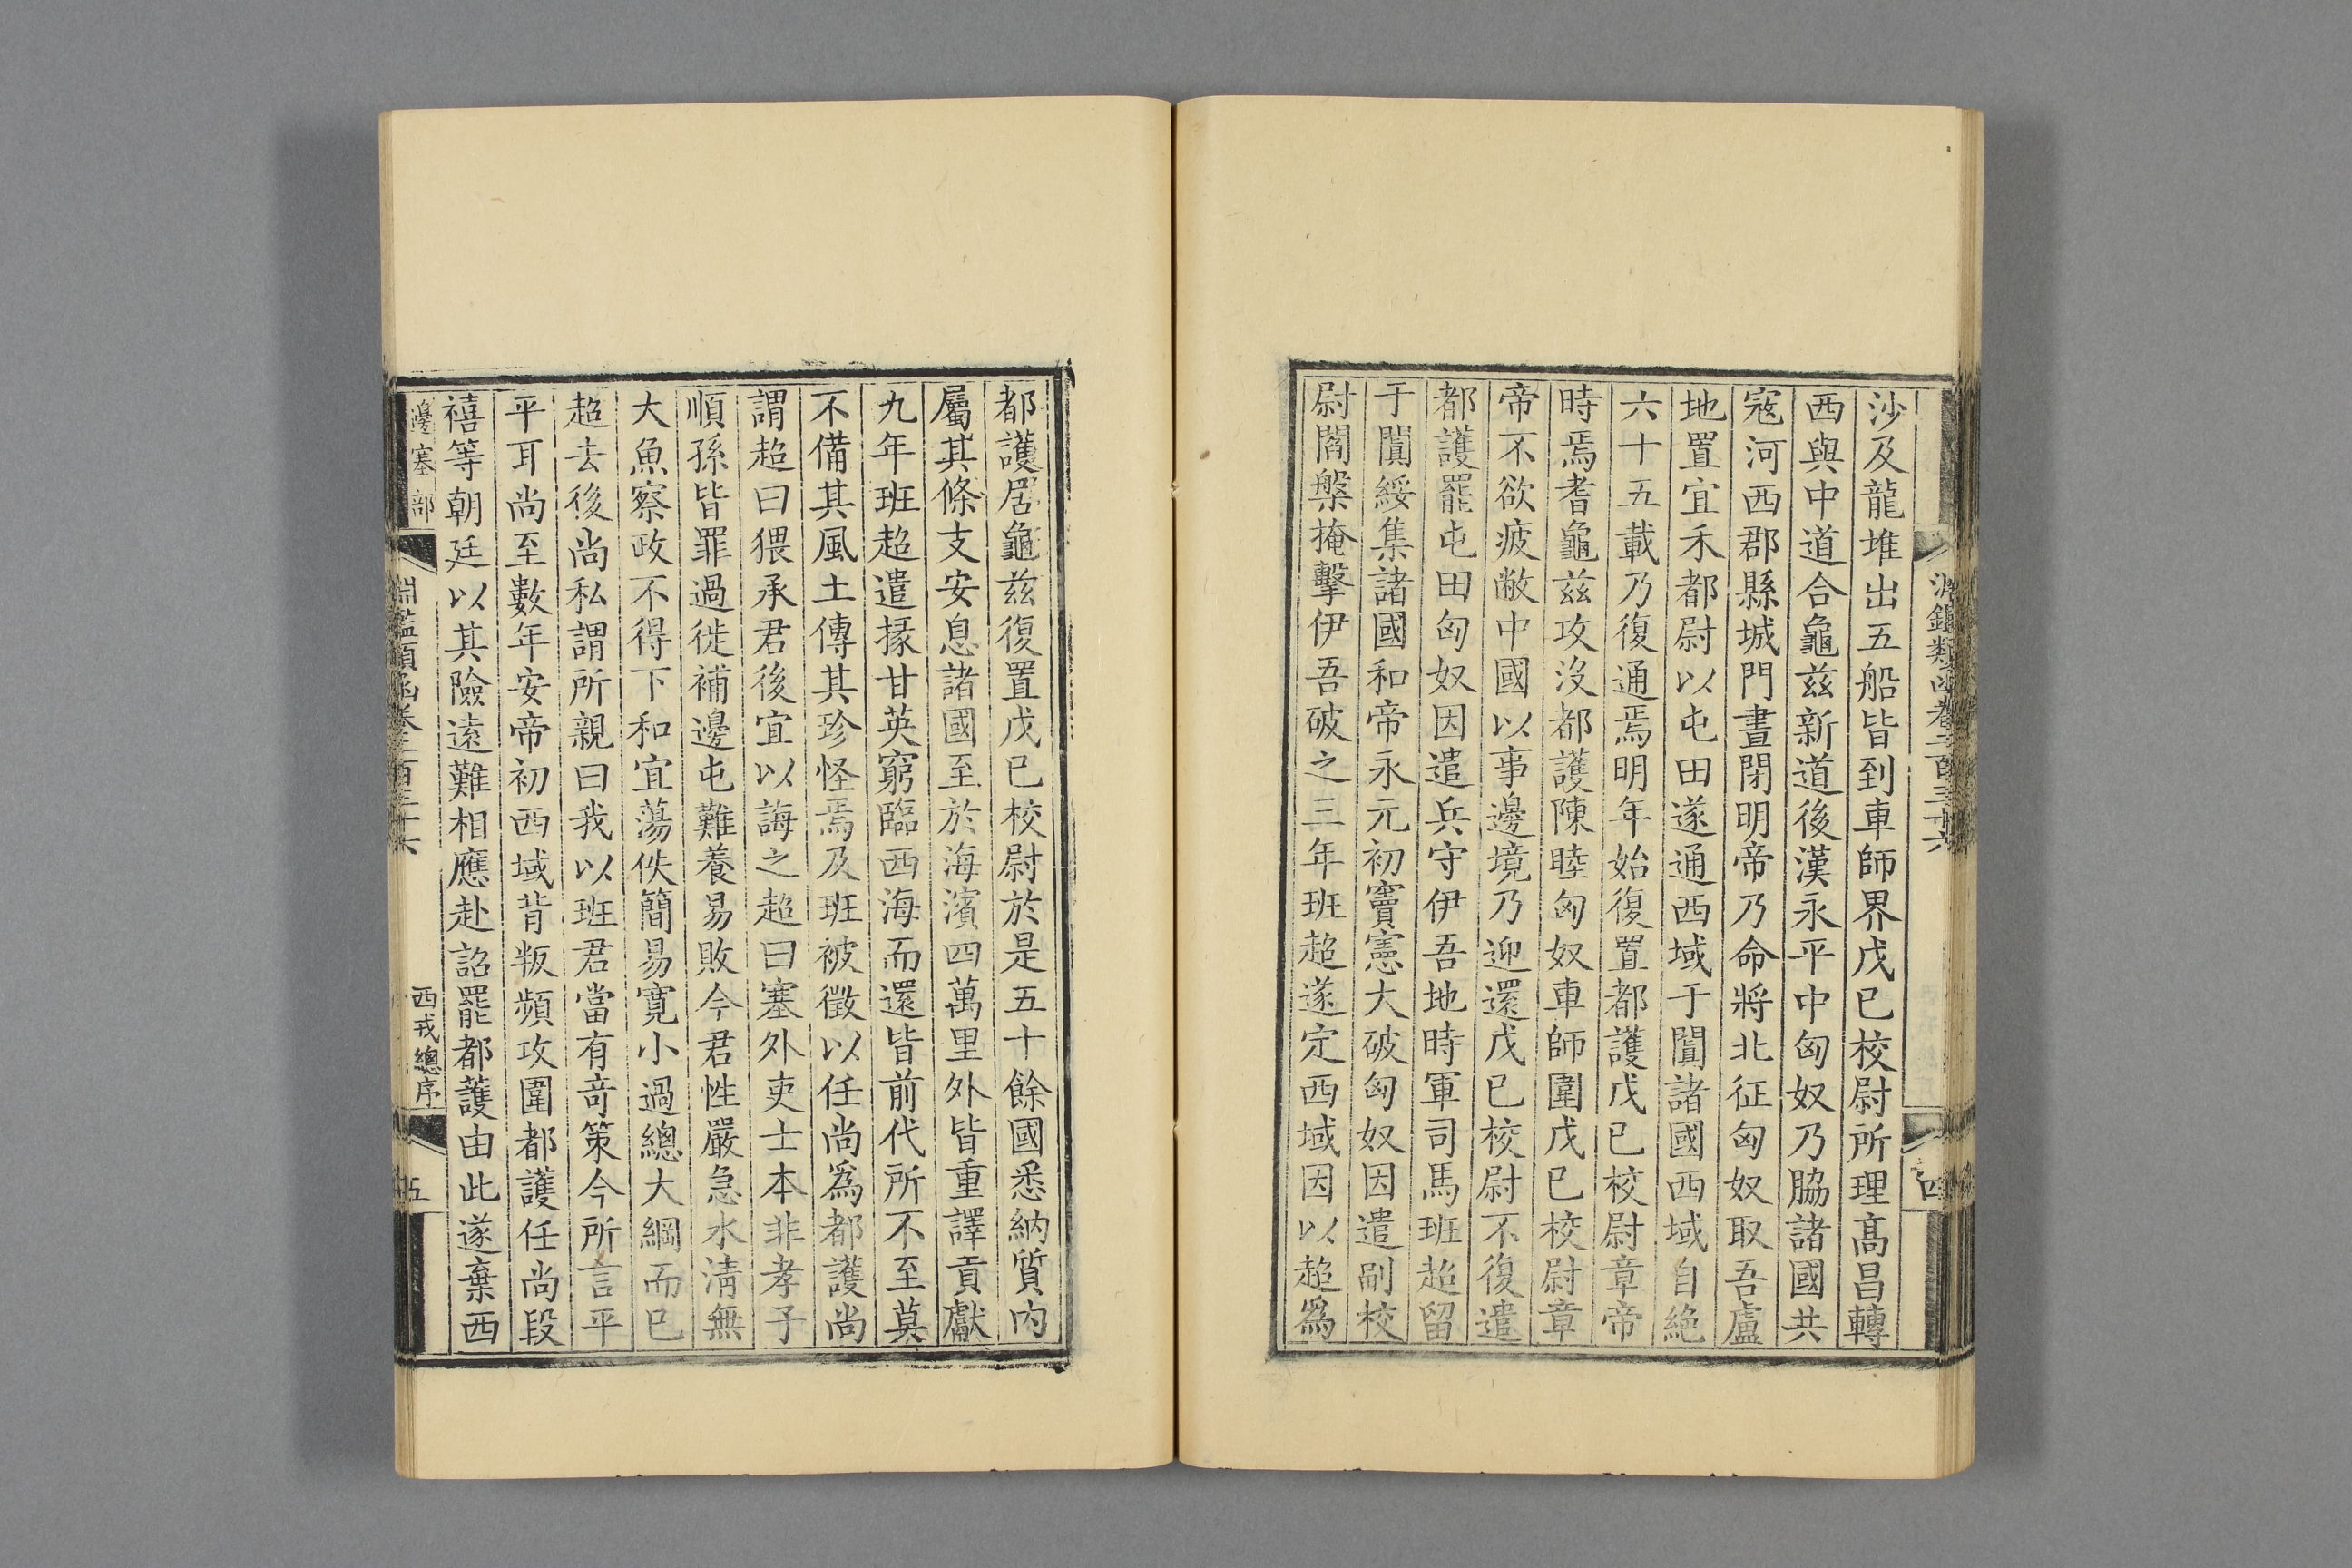 沙及龍堆出五船皆到車師界戊已校尉所理髙昌轉
西與中道合龜兹新道後漢永平中匈奴乃脇諸國共
寇河西郡縣城門晝閉明帝乃命將北征匈奴取吾盧
地置宜禾都尉以屯田遂通西域于闐諸國西域自絶
六十五載乃復通焉明年始復置都護戊已校尉章帝
時焉耆龜兹攻沒都護陳睦匈奴車師圍戊已校尉章
帝不欲疲敝中國以事邊境乃迎還戊已校尉不復遣
都護罷屯田匈奴因遣兵守伊吾地時軍司馬班超留
于闐綏集諸國和帝永元初竇憲大破匈奴因遣副校
尉閻槃掩擊伊吾破之三年班超遂定西域因以超爲
淵鑑類函卷二百三十六
四
都護居龜兹復置戊已校尉於是五十餘國悉納質内
屬其條支安息諸國至於海濱四萬里外皆重譯貢獻
九年班超遣掾甘英窮臨西海而還皆前代所不至莫
不備其風土傳其珍怪焉及班被徵以任尚爲都護尚
謂超曰猥承君後宜以誨之超曰塞外吏士本非孝子
順孫皆罪過徙補邊屯難養易敗今君性嚴急水淸無
大魚察政不得下和宜蕩佚簡易寛小過總大綱而已
超去後尚私謂所親曰我以班君當有竒策今所言平
平耳尚至數年安帝初西域背叛頻攻圍都護任尚段
禧等朝廷以其險逺難相應赴詔罷都護由此遂棄西
邊塞部
淵鑑類函卷二百三十六
西戎總序
五